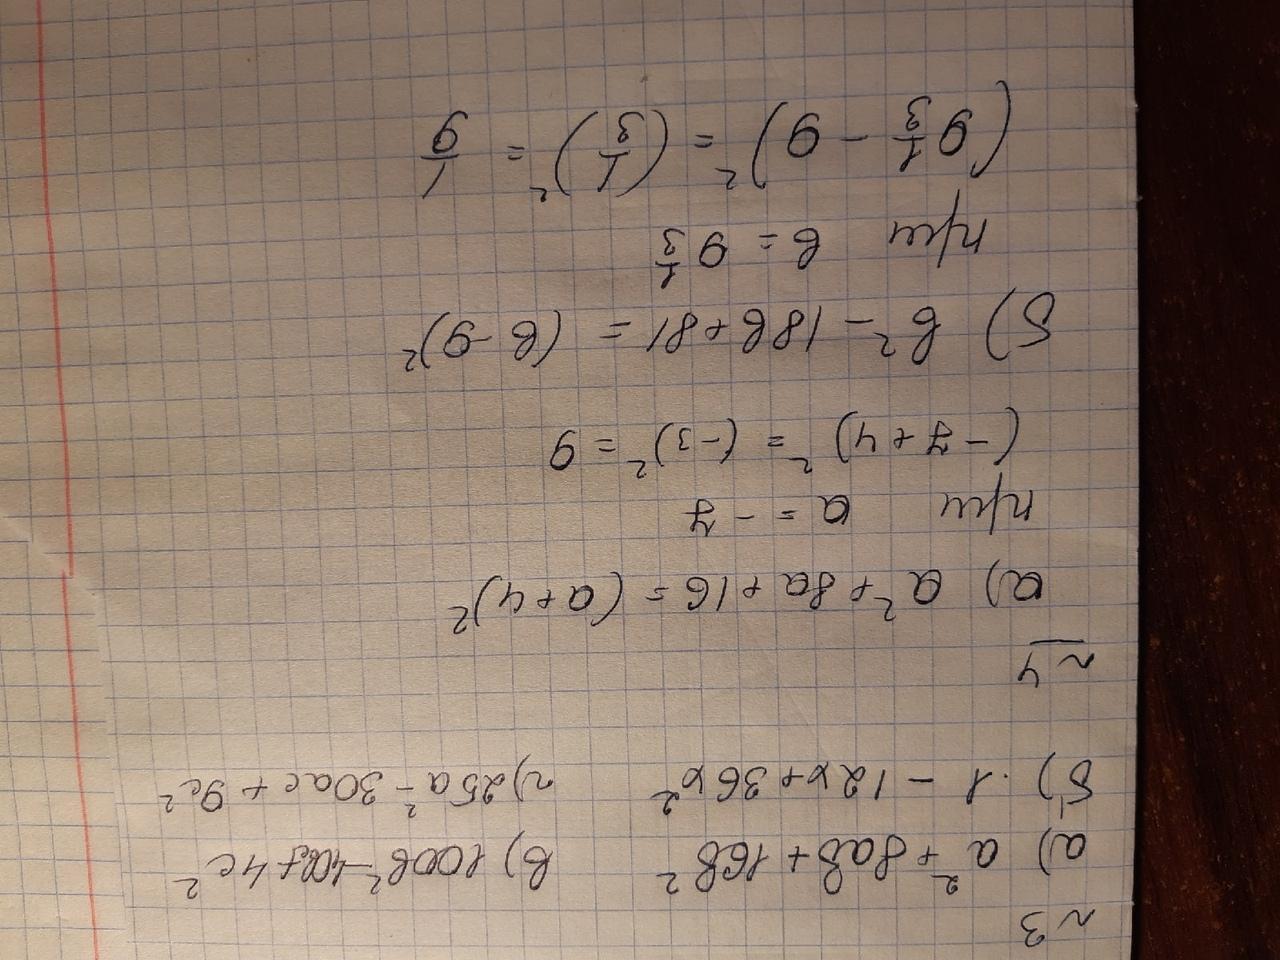 ~3
а) a² + 8ab + 16b² в) 100b² - 40bc + 4c²
б) 1 - 12x + 36x² г) 25a² - 30ac + 9c²
~4
а) a² + 8a + 16 = (a + 4)²
при a = -7
(-7 + 4)² = (-3)² = 9
б) b² - 18b + 81 = (b - 9)²
при b = 9 1/3
(9 1/3 - 9)² = (1/3)² = 1/9